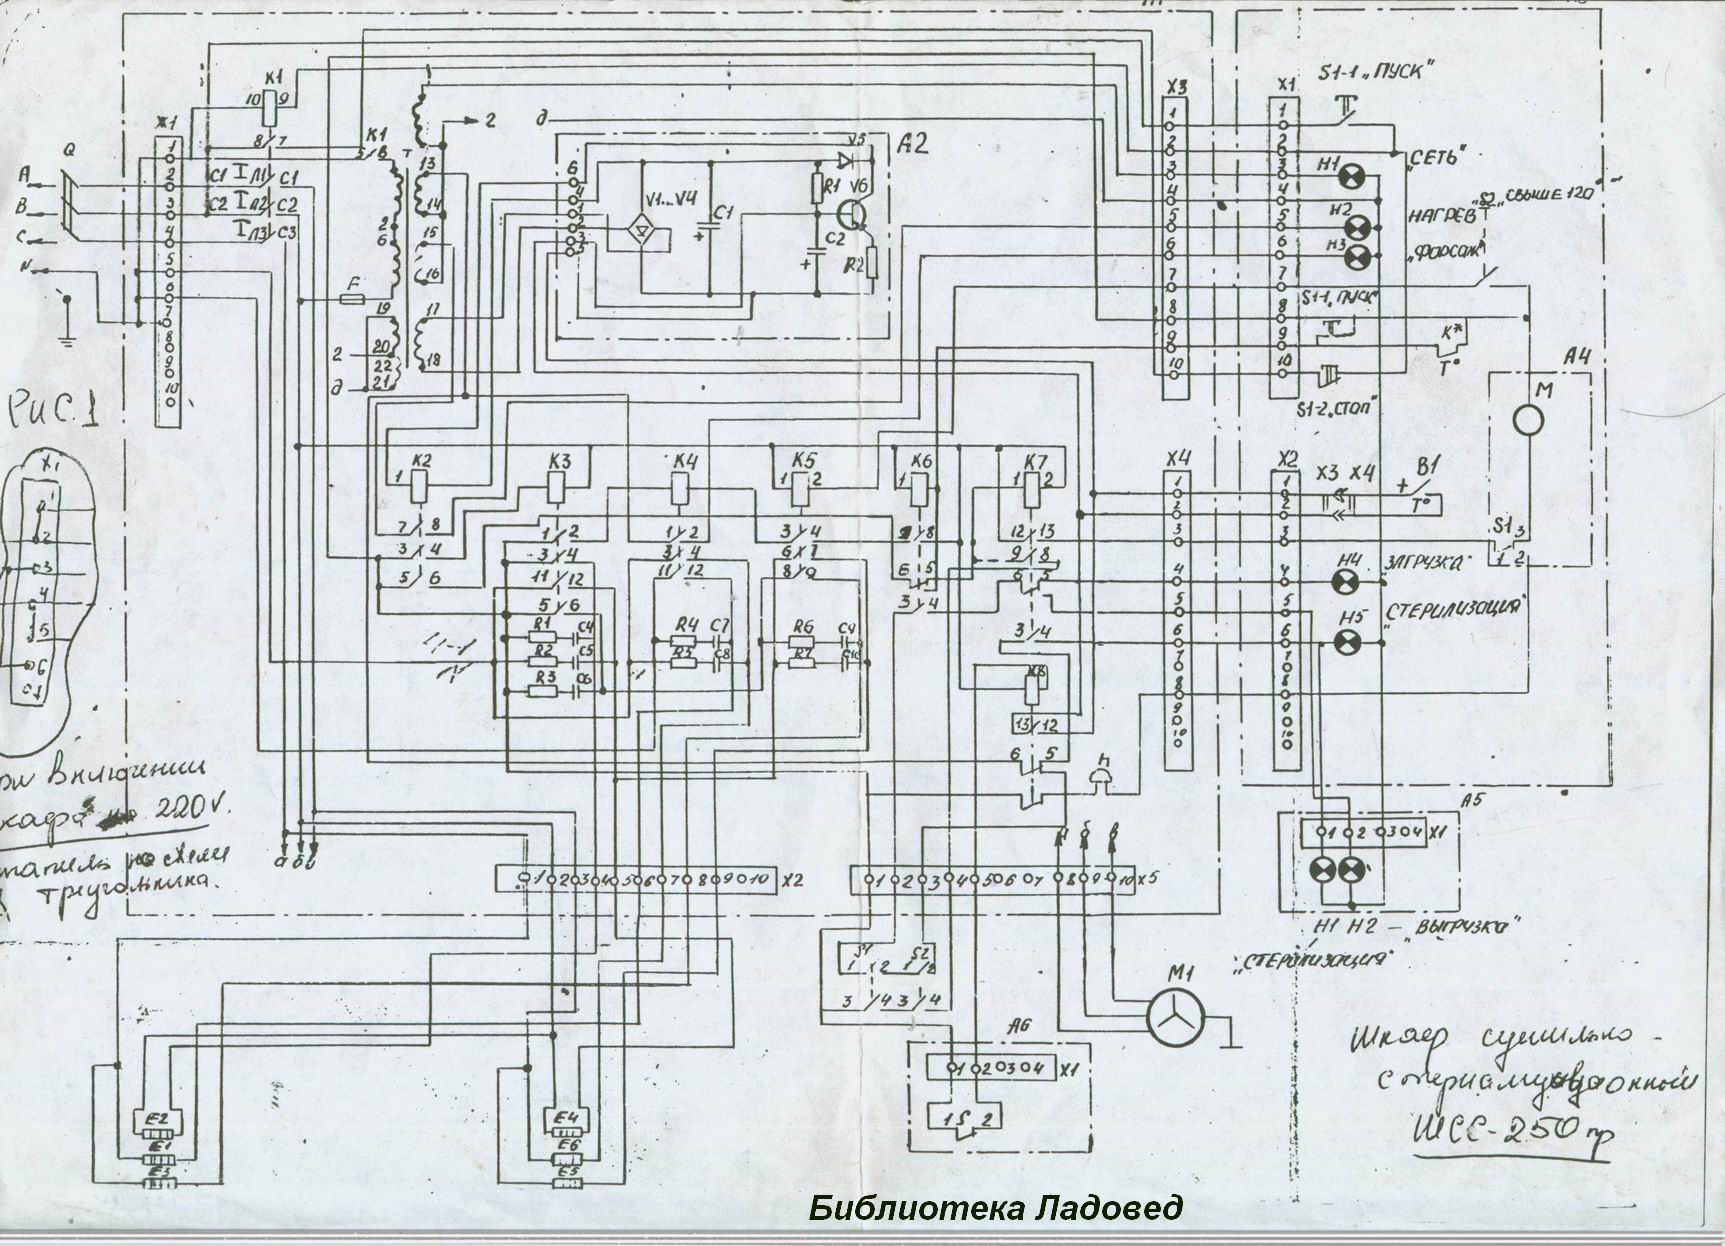 K1
10 9
8 7
X1
1
2
3
4
5
6
7
8
9
10
Q
A
B
C
N
C1 Л1 C1
C2 Л2 C2
Л3 C3
F
K1
5 8
T
2
6
13
14
15
16
17
18
19
20
22
21
2
д
2
д
A2
6
4
1
2
3
5
V1...V4
C1
R1
V5
V6
C2
R2
X3
1
2
3
4
5
6
7
8
9
10
X1
1
2
3
4
5
6
7
8
9
10
S1-1 „ПУСК"
H1
„СЕТЬ"
H2
НАГРЕВ"
H3
„ФОРСАЖ"
S2 „СВЫШЕ 120
S1-1 „ПУСК"
K*
T°
S1-2 „СТОП"
A4
M
S1 3
1 2
РИС.1
X1
1
2
3
4
5
6
K2
1
7 8
3 4
5 6
K3
1 2
3 4
11 12
5 6
R1 C4
R2 C5
R3 C6
K4
1 2
3 4
11 12
R4 C7
R5 C8
K5
1 2
3 4
6 7
8 9
R6 C9
R7 C10
K6
1
8
6 5
3 4
K7
1 2
12 13
9 8
6 5
3 4
K8
13 12
6 5
X4
1
2
3
4
5
6
7
8
9
10
X2
1
2
3
4
5
6
7
8
9
10
X3 X4
B1
+
T°
H4
„ЗАГРУЗКА"
H5
„СТЕРИЛИЗАЦИЯ"
включении
220V.
по схеме
треугольника.
а б в
1 2 3 4 5 6 7 8 9 10 X2
1 2 3 4 5 6 7 8 9 10 X5
A5
1 2 3 4 X1
H1 H2 — „ВЫГРУЗКА"
„СТЕРИЛИЗАЦИЯ"
S1 S2
1 2 1 2
3 4 3 4
A6
1 2 3 4 X1
1 S 2
M1
E2
E1
E3
E4
E6
E5
Шкаф сушильно-
стерилизационный
ШСС-250 пр
Библиотека Ладовед